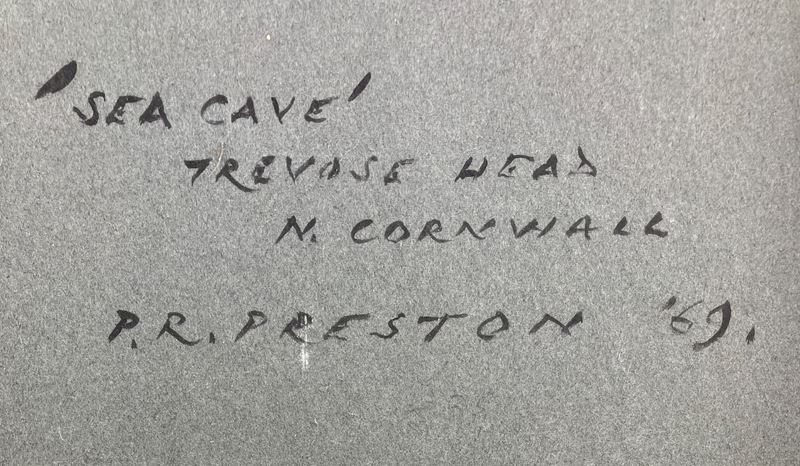 'SEA CAVE'
TREVOSE HEAD
N. CORNWALL
P.R. PRESTON '69.